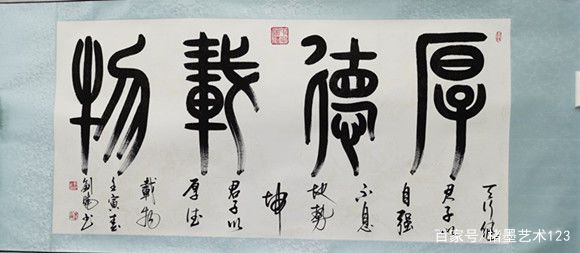 厚德載物
天行健
君子以
自强
不息
地勢
坤
君子以
厚德
載物
壬寅春
书
百家号/墨艺术123